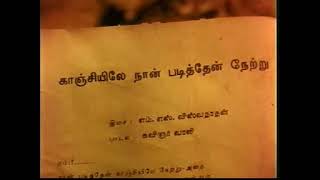 காஞ்சியிலே நான் படித்தேன் நேற்று
இசை : எம். எஸ். விஸ்வநாதன்
பாடல் : கவிஞர் வாலி
நான் படித்தேன் காஞ்சியிலே நேற்று-அதை